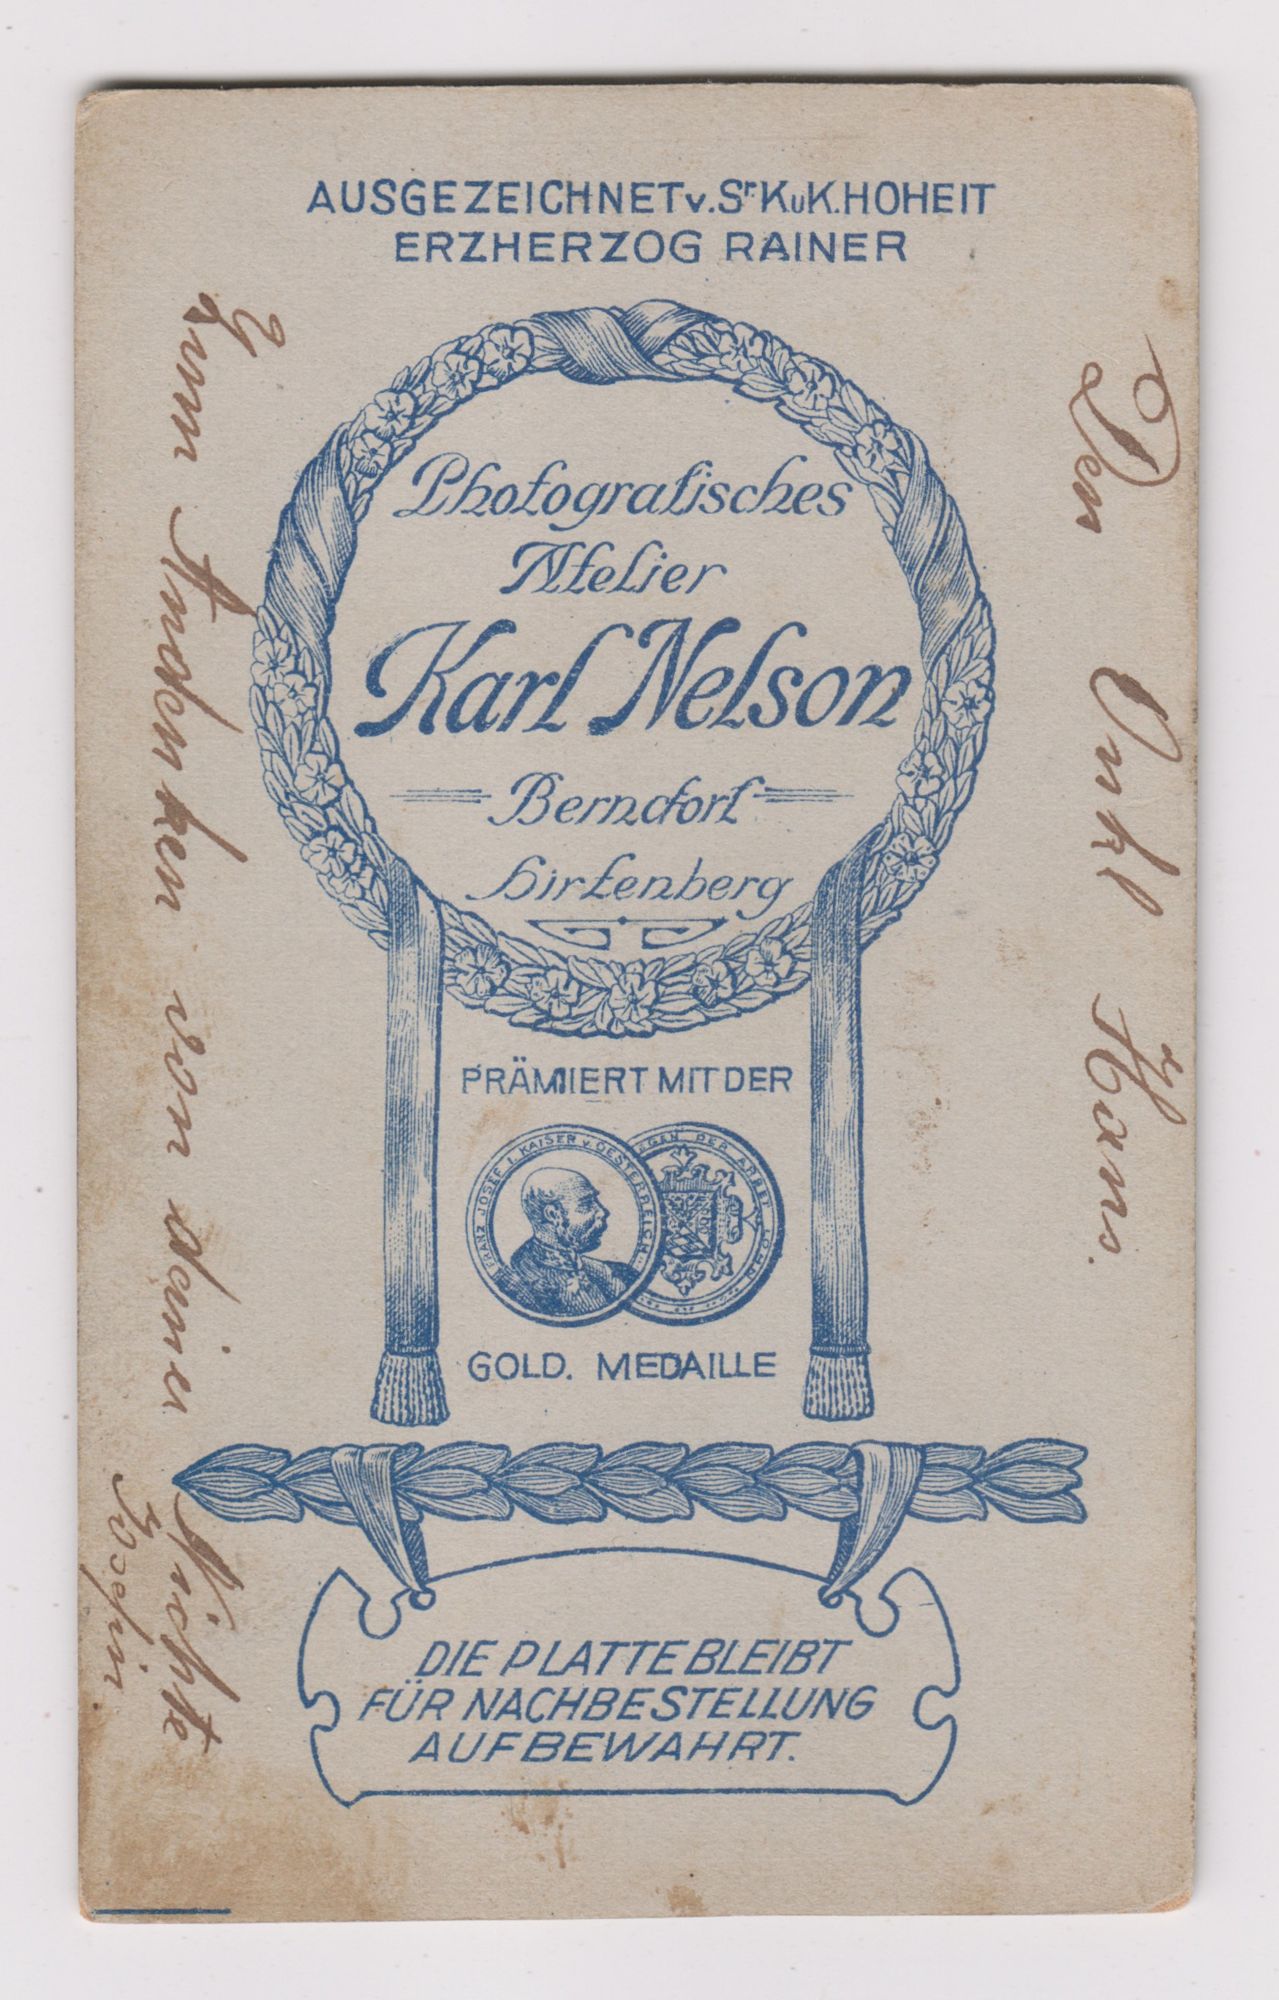 AUSGEZEICHNET v. Sr. K u K. HOHEIT
ERZHERZOG RAINER
Photografisches
Atelier
Karl Nelson
Berndorf
Hirtenberg
PRÄMIIERT MIT DER
FRANZ JOSEF I. KAISER v. OESTERREICH
SEGEN DER ARBEIT LOHN
GOLD. MEDAILLE
DIE PLATTE BLEIBT
FÜR NACHBESTELLUNG
AUFBEWAHRT.
Den Onkl Hans.
Zum Andenken von deiner Nichte
Josefin.